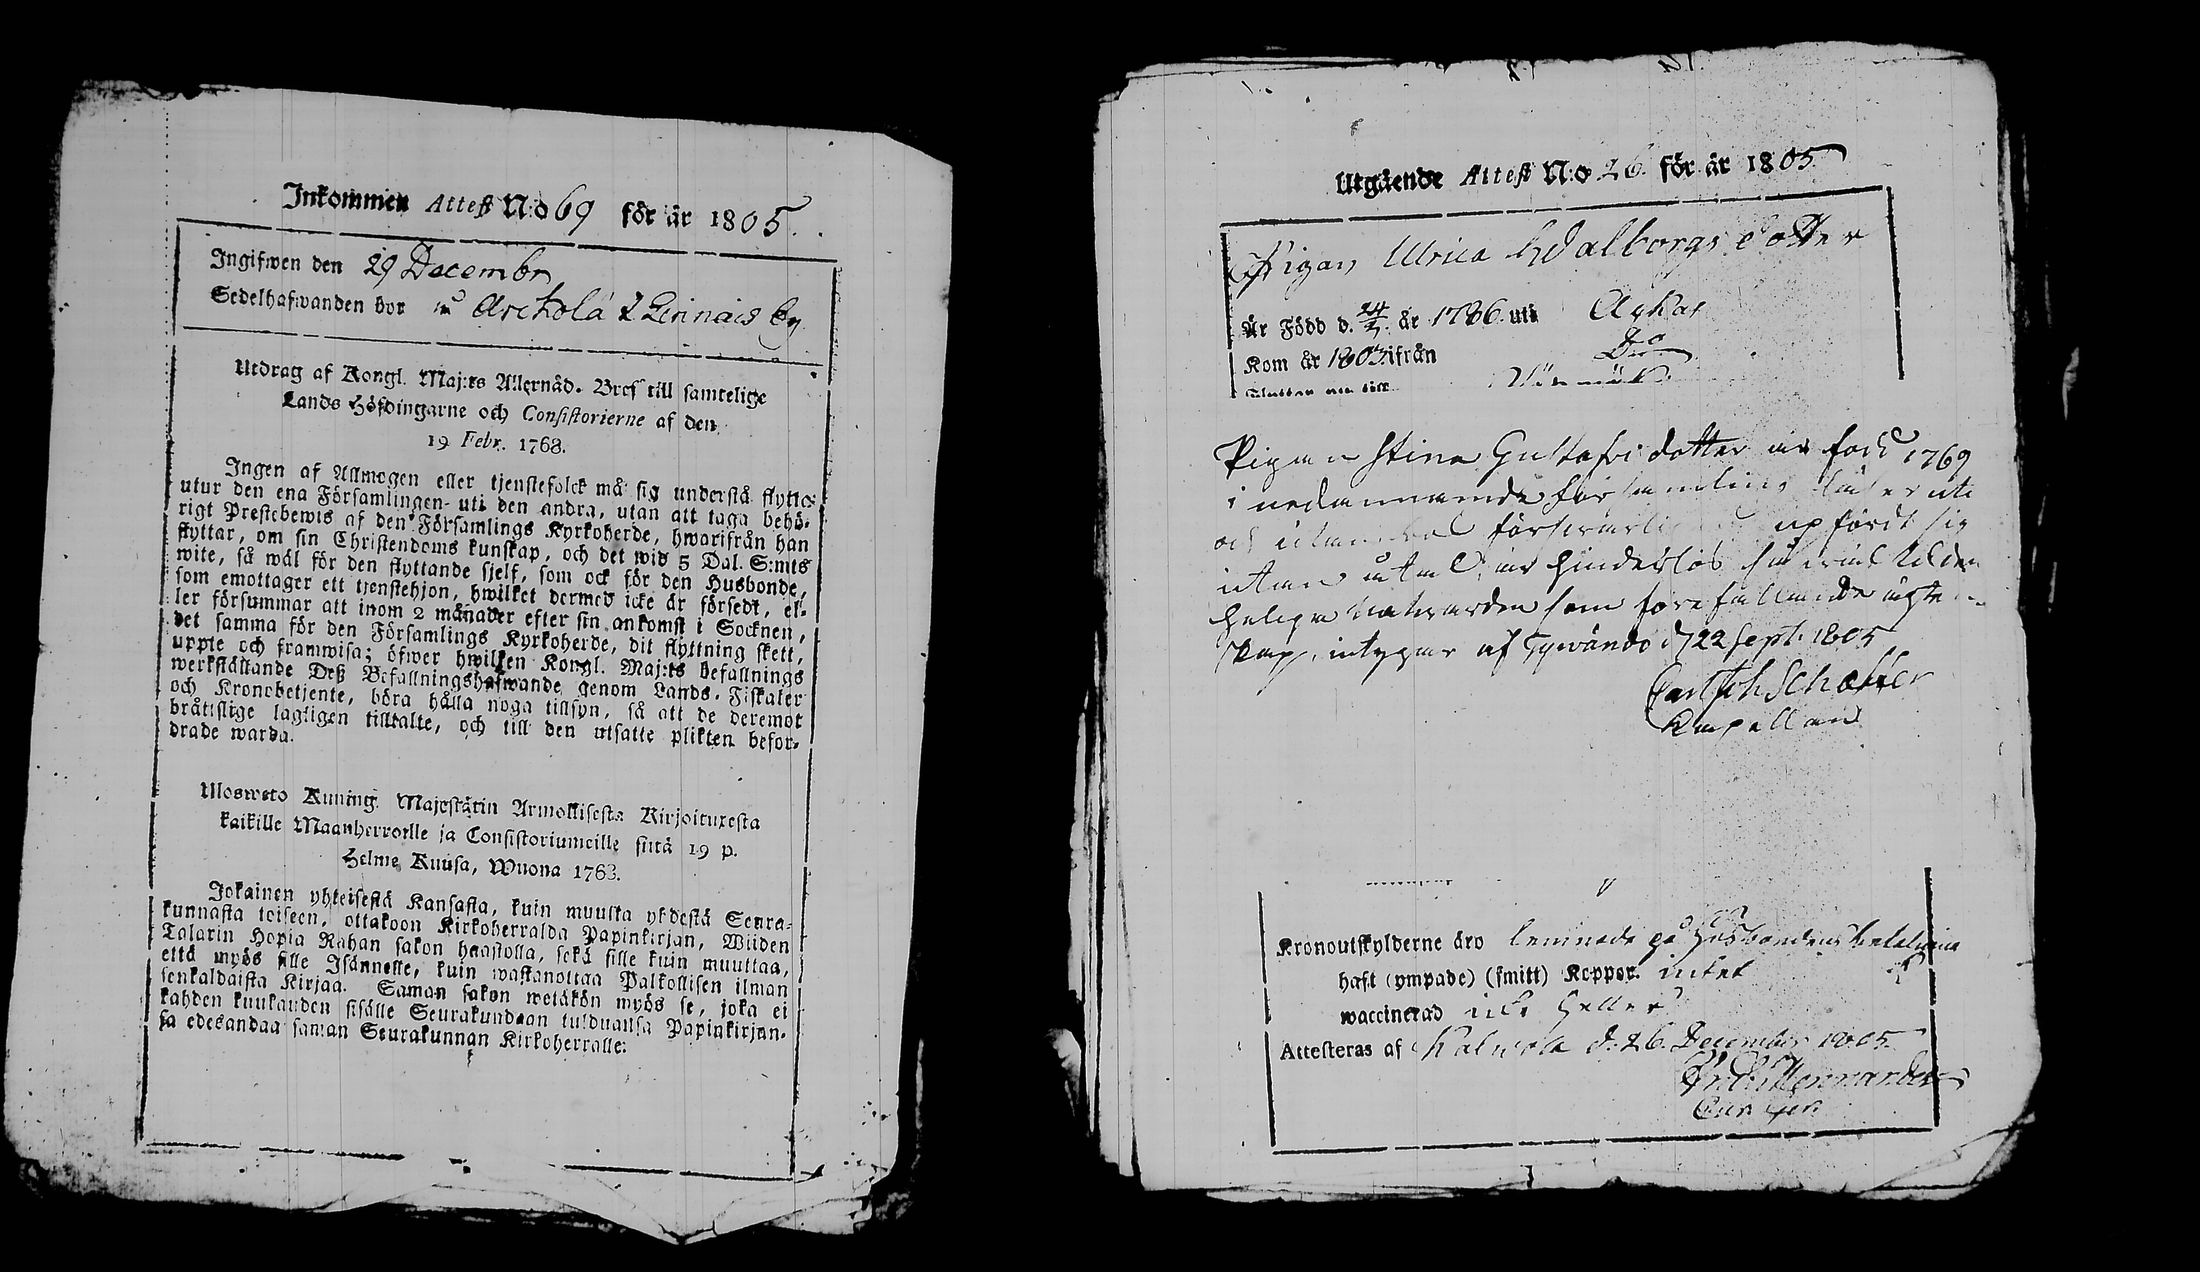 Inkommen Attest N:o 69 för år 1805.
Ingifwen den 29 Decembr
Sedelhafwanden bor Arckola Linnais by
Utdrag af Kongl. Maj:ts Allernåd. Bref till samtelige
Lands Höfdingarne och Consistorierne af den
19 Febr. 1768.
Ingen af Allmogen eller tjenstefolck må sig understå flytta
utur den ena Församlingen uti den andra, utan att taga behö-
rigt Prestebewis af den Församlings Kyrkoherde, hwarifrån han
flyttar, om sin Christendoms kunskap, och det wid 5 Dal. S:mts
wite, så wäl för den flyttande sjelf, som ock för den Husbonde,
som emottager ett tjenstehjon, hwilket dermed icke är försedt, el-
ler försummar att inom 2 månader efter sin ankomst i Socknen,
det samma för den Församlings Kyrkoherde, dit flyttning skett,
uppte och framwisa; öfwer hwilken Kongl. Maj:ts befallnings
werkställande Deß Befallningshafwande genom Lands-Fiskaler
och Kronobetjente, böra hålla noga tillsyn, så att de deremot
bråttslige lagligen tilltalte, och till den utsatte plikten befor-
drade warda.
Uloswето Kuning. Majestätin Armollisesta Kirjoituxesta
kaikille Maanherroille ja Consistoriumeille siitä 19 p.
Helme Kuusa, Wuona 1763.
Jokainen yhteisestä Kansasta, kuin muutta yhdestä Seura-
kunnasta toiseen, ottakoon Kirkoherralda Papinkirjan, Wiiden
Talarin Hopia Rahan sakon haastolla, sekä sille kuin muuttaa,
että myös sille Isännelle, kuin wastanottaa Palkollisen ilman
senkaldaista Kirjaa. Saman sakon wetäkön myös se, joka ei
kahden kuukauden sisälle Seurakundaan tulduansa Papinkirjan-
sa edesandaa saman Seurakunnan Kirkoherralle.
Utgående Attest N:o 26. för år 1805
Pigan Ulrica Walborgs dotter
Är Född d. 24/2. år 1786. uti Askas
Kom år 1805 ifrån Do
Pigan Stina Gustafsdotter är född 1769
i nedannämnde församling läser uti
och utan försvarligen upfördt sig
utan är hinderlös
heliga nattvarden som förefallande ägten-
skap, intygar af Tywändö d 22 Sept. 1805
Carl Joh Schæffer
Kapellan
Kronoutskylderne äro lemnade på husbondens betalning
haft (ympade) (smitt) Koppor intet
waccinerad icke heller
Attesteras af Kalwola d. 26. December 1805.